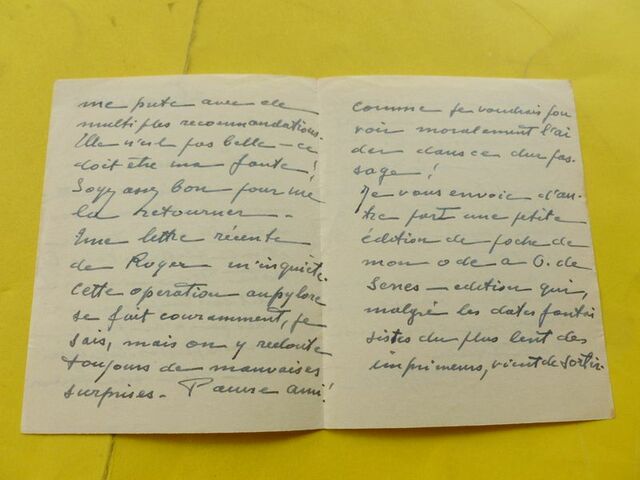 me prete avec de
multiples recommandations.
Elle n'est pas belle - ce
doit être ma faute!
Soyez assez bon pour me
la retourner -
Une lettre récente
de Roger m'inquiète.
Cette operation au pylore
se fait couramment, je
sais, mais on y redoute
toujours de mauvaises
surprises - Pauvre ami!
comme je voudrais pou
voir moralement l'ai
der dans ce dur pas-
sage!
Je vous envoie d'au-
tre part une petite
édition de poche de
mon ode a O. de
Serres - edition qui,
malgré les dates fantai
sistes du plus lent des
imprimeurs, vient de sortir.